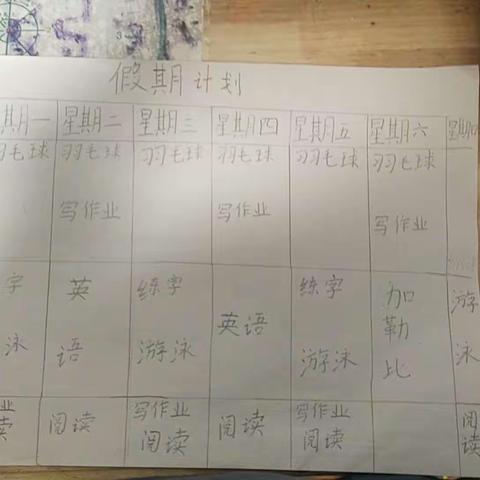 假期计划
期一 星期二 星期三 星期四 星期五 星期六 星期
羽毛球 羽毛球 羽毛球 羽毛球 羽毛球 羽毛球
写作业 写作业 写作业
字 英 练字 英语 练字 加 游
泳 语 游泳 游泳 勒 泳
比
业 写作业 写作业
读 阅读 阅读 阅读 阅读 阅读